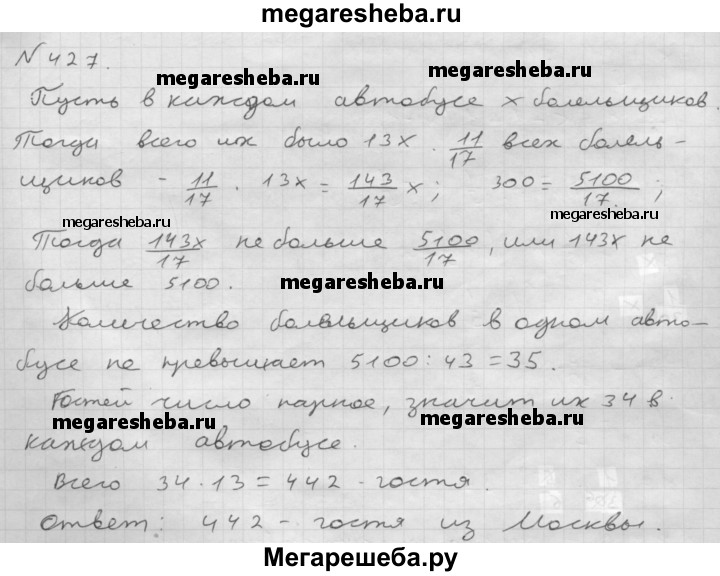 megaresheba.ru
N 427.
megaresheba.ru megaresheba.ru
Пусть в каждом автобусе x болельщиков.
Тогда всего их было 13x. 11/17 всех болель-
щиков - 11/17 · 13x = 143/17 x; 300 = 5100/17;
megaresheba.ru megaresheba.ru
Тогда 143x/17 не больше 5100/17, или 143x не
больше 5100.
megaresheba.ru
Количество болельщиков в одном авто-
бусе не превышает 5100 : 43 = 35.
Гостей число парное, значит их 34 в
megaresheba.ru megaresheba.ru
каждом автобусе.
Всего 34 · 13 = 442 - гостя.
Ответ: 442 - гостя из Москвы.
Мегарешеба.ру